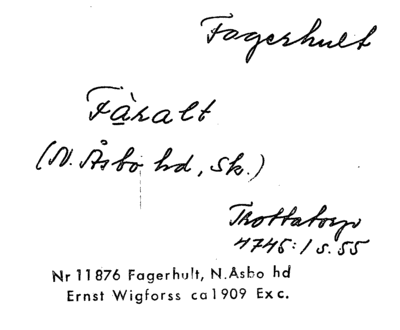 Fagerhult
Fàralt
(N. Åsbo hd, Sk.)
4745:1 s. 55
Nr 11876 Fagerhult, N. Åsbo hd
Ernst Wigforss ca 1909 Exc.